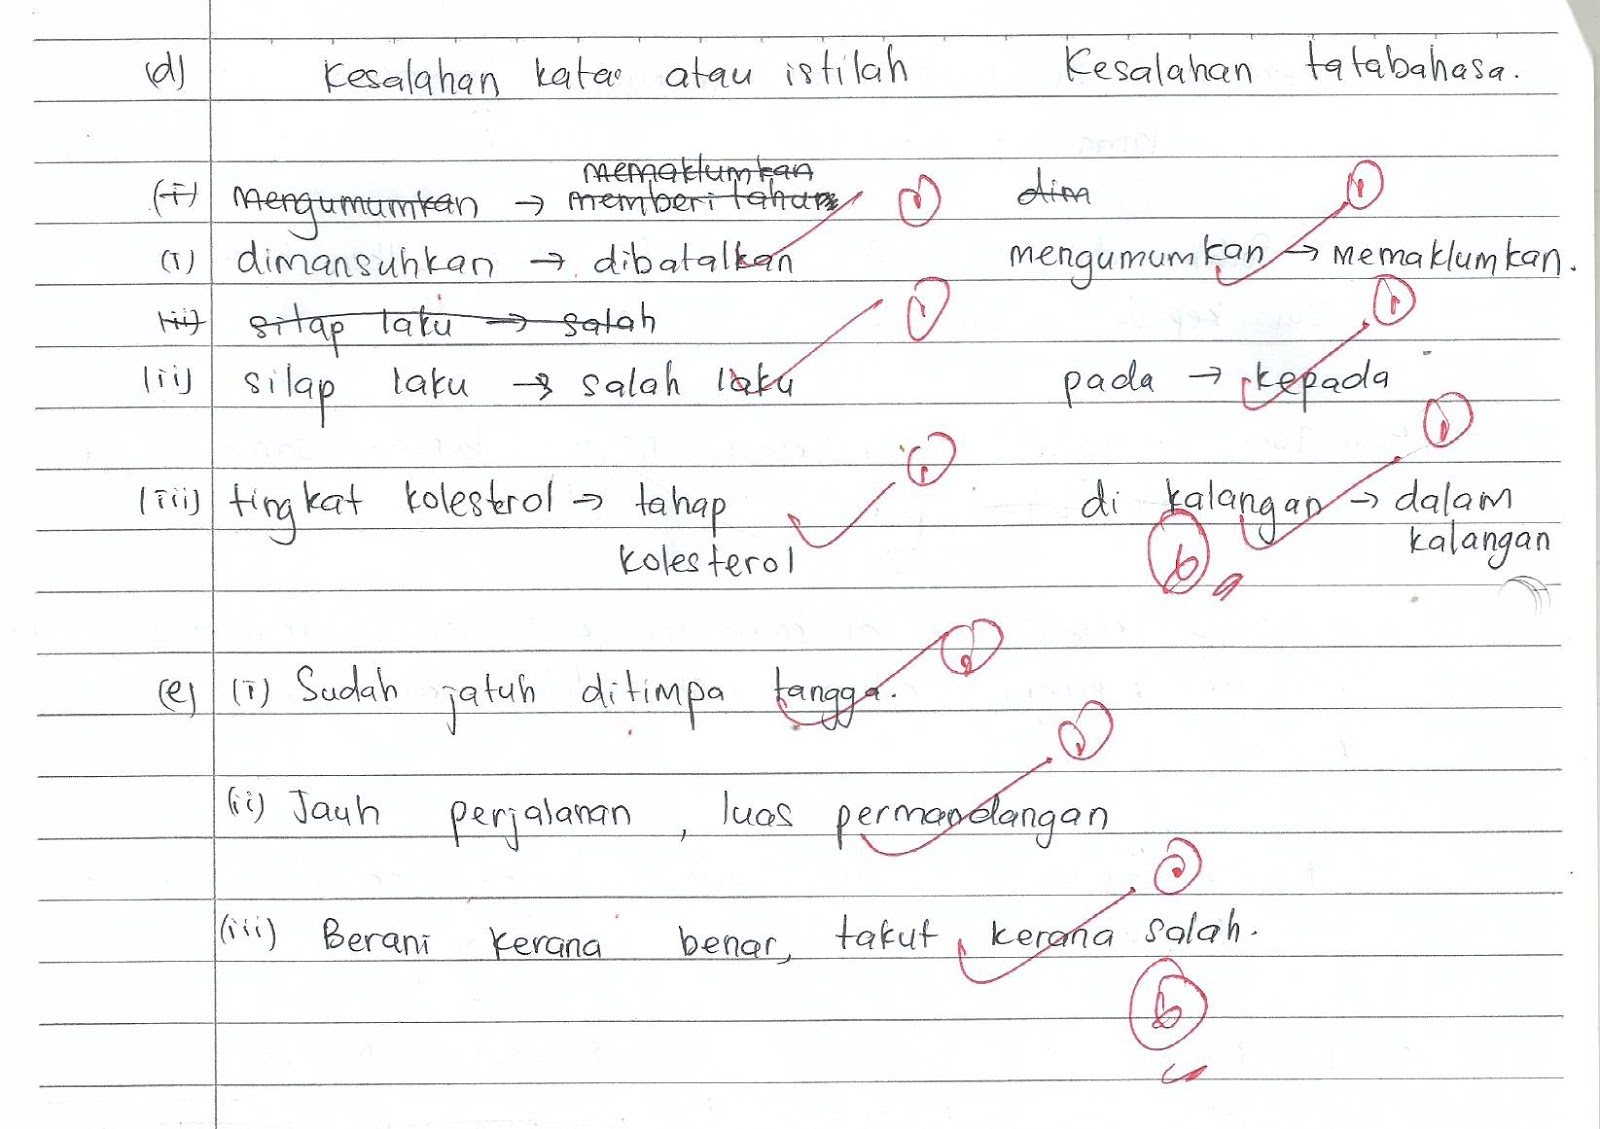 (d) Kesalahan kata atau istilah Kesalahan tatabahasa.
memaklumkan
(ii) mengumumkan → memberi tahu 1 dim 1
(i) dimansuhkan → dibatalkan mengumumkan → memaklumkan.
(ii) silap laku → salah 1 1
(ii) silap laku → salah laku pada → kepada
1 1
(iii) tingkat kolesterol → tahap di kalangan → dalam
kolesterol kalangan
6
2
(e) (i) Sudah jatuh ditimpa tangga.
2
(ii) Jauh perjalanan, luas permandangan
2
(iii) Berani kerana benar, takut kerana salah.
6